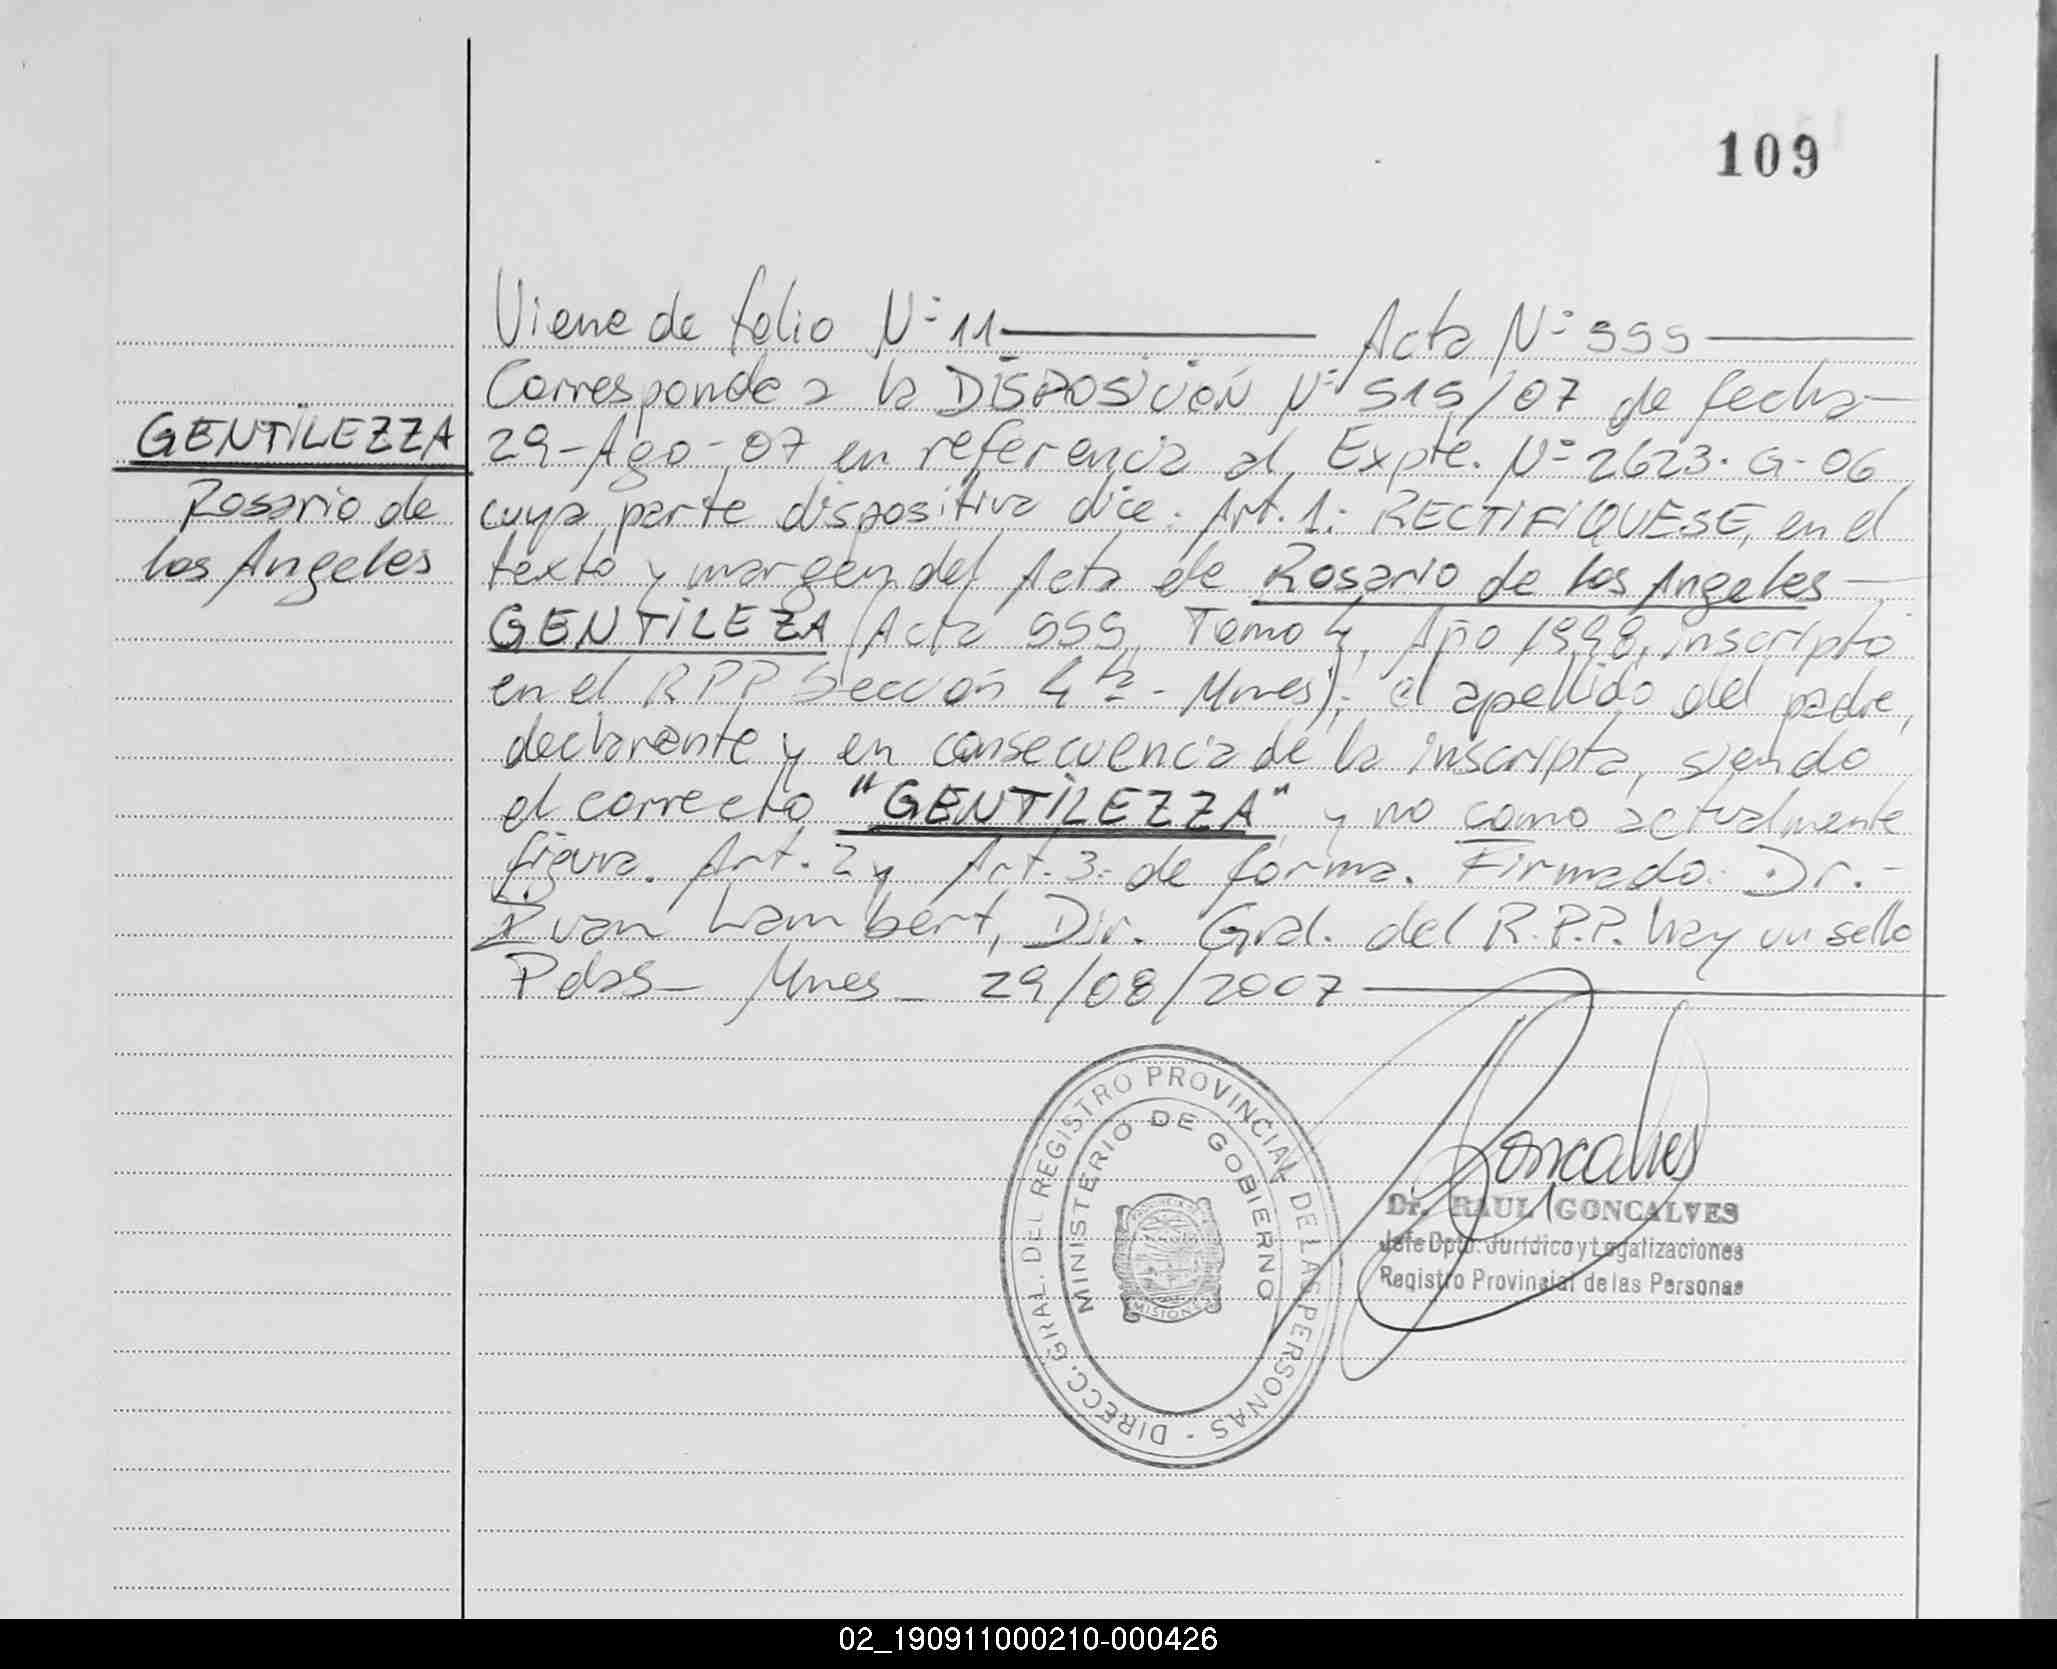 109
Viene de folio Nº 11 Acta Nº 999
Corresponde a la DISPOSICIÓN Nº 519/07 de fecha
GENTILEZZA
29-Ago-07 en referencia al Expte. Nº 2623-G-06
Rosario de
cuya parte dispositiva dice: Art. 1: RECTIFIQUESE, en el
los Angeles
texto y margen del Acta de Rosario de los Angeles
GENTILEZA (Acta 999, Tomo 4, Año 1998, inscripto
en el RPP Sección 4ta - Mnes); el apellido del padre,
declarante y en consecuencia de la inscripta, siendo
el correcto "GENTILEZZA" y no como actualmente
figura. Art. 2 y Art. 3: de forma. Firmado: Dr.-
Ivan Lambert, Dir. Gral. del R.P.P. hay un sello
Pdas - Mnes - 29/08/2007
DIRECC. GRAL. DEL REGISTRO PROVINCIAL DE LAS PERSONAS -
MINISTERIO DE GOBIERNO
MISIONES
Goncalves
Dr. RAUL GONCALVES
Jefe Dpto. Jurídico y Legalizaciones
Registro Provincial de las Personas
02_190911000210-000426